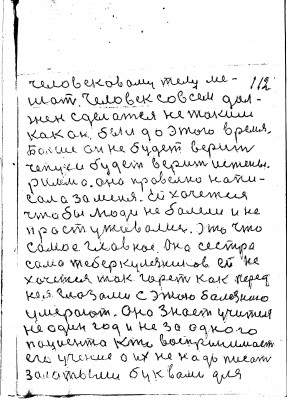 112
человековому телу ме-
шат. Человек совсем дол-
жен сделатся не таким
как он был до этого время.
Больше он не будет верит
чепухи будет верит истены.
Римма. она провелно напи-
сала за меня. Ей хочется
чтобы люди не болели и не
простуживались. Это что
самое главное. Она сестра
сама теберкулезников ей не
хочется так гарет как перед
ней глазами с этою балезнию
умерают. Она знает учится
не один год и не за одного
пациента кто воспринимает
его учение о их не надь писат
залатыеми буквами для